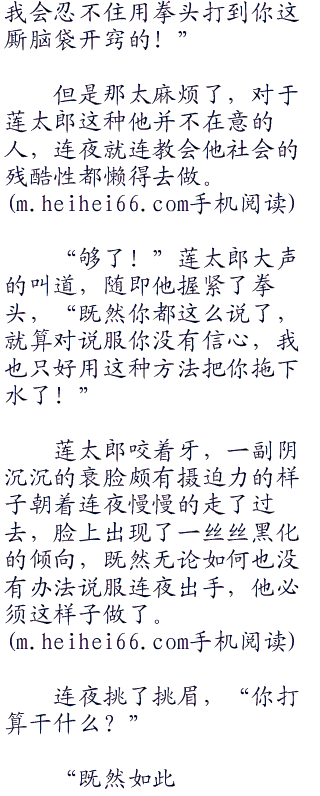 我会忍不住用拳头打到你这
厮脑袋开窍的！”
但是那太麻烦了，对于
莲太郎这种他并不在意的
人，连夜就连教会他社会的
残酷性都懒得去做。
(m.heihei66.com手机阅读)
“够了！”莲太郎大声
的叫道，随即他握紧了拳
头，“既然你都这么说了，
就算对说服你没有信心，我
也只好用这种方法把你拖下
水了！”
莲太郎咬着牙，一副阴
沉沉的衰脸颇有摄迫力的样
子朝着连夜慢慢的走了过
去，脸上出现了一丝丝黑化
的倾向，既然无论如何也没
有办法说服连夜出手，他必
须这样子做了。
(m.heihei66.com手机阅读)
连夜挑了挑眉，“你打
算干什么？”
“既然如此